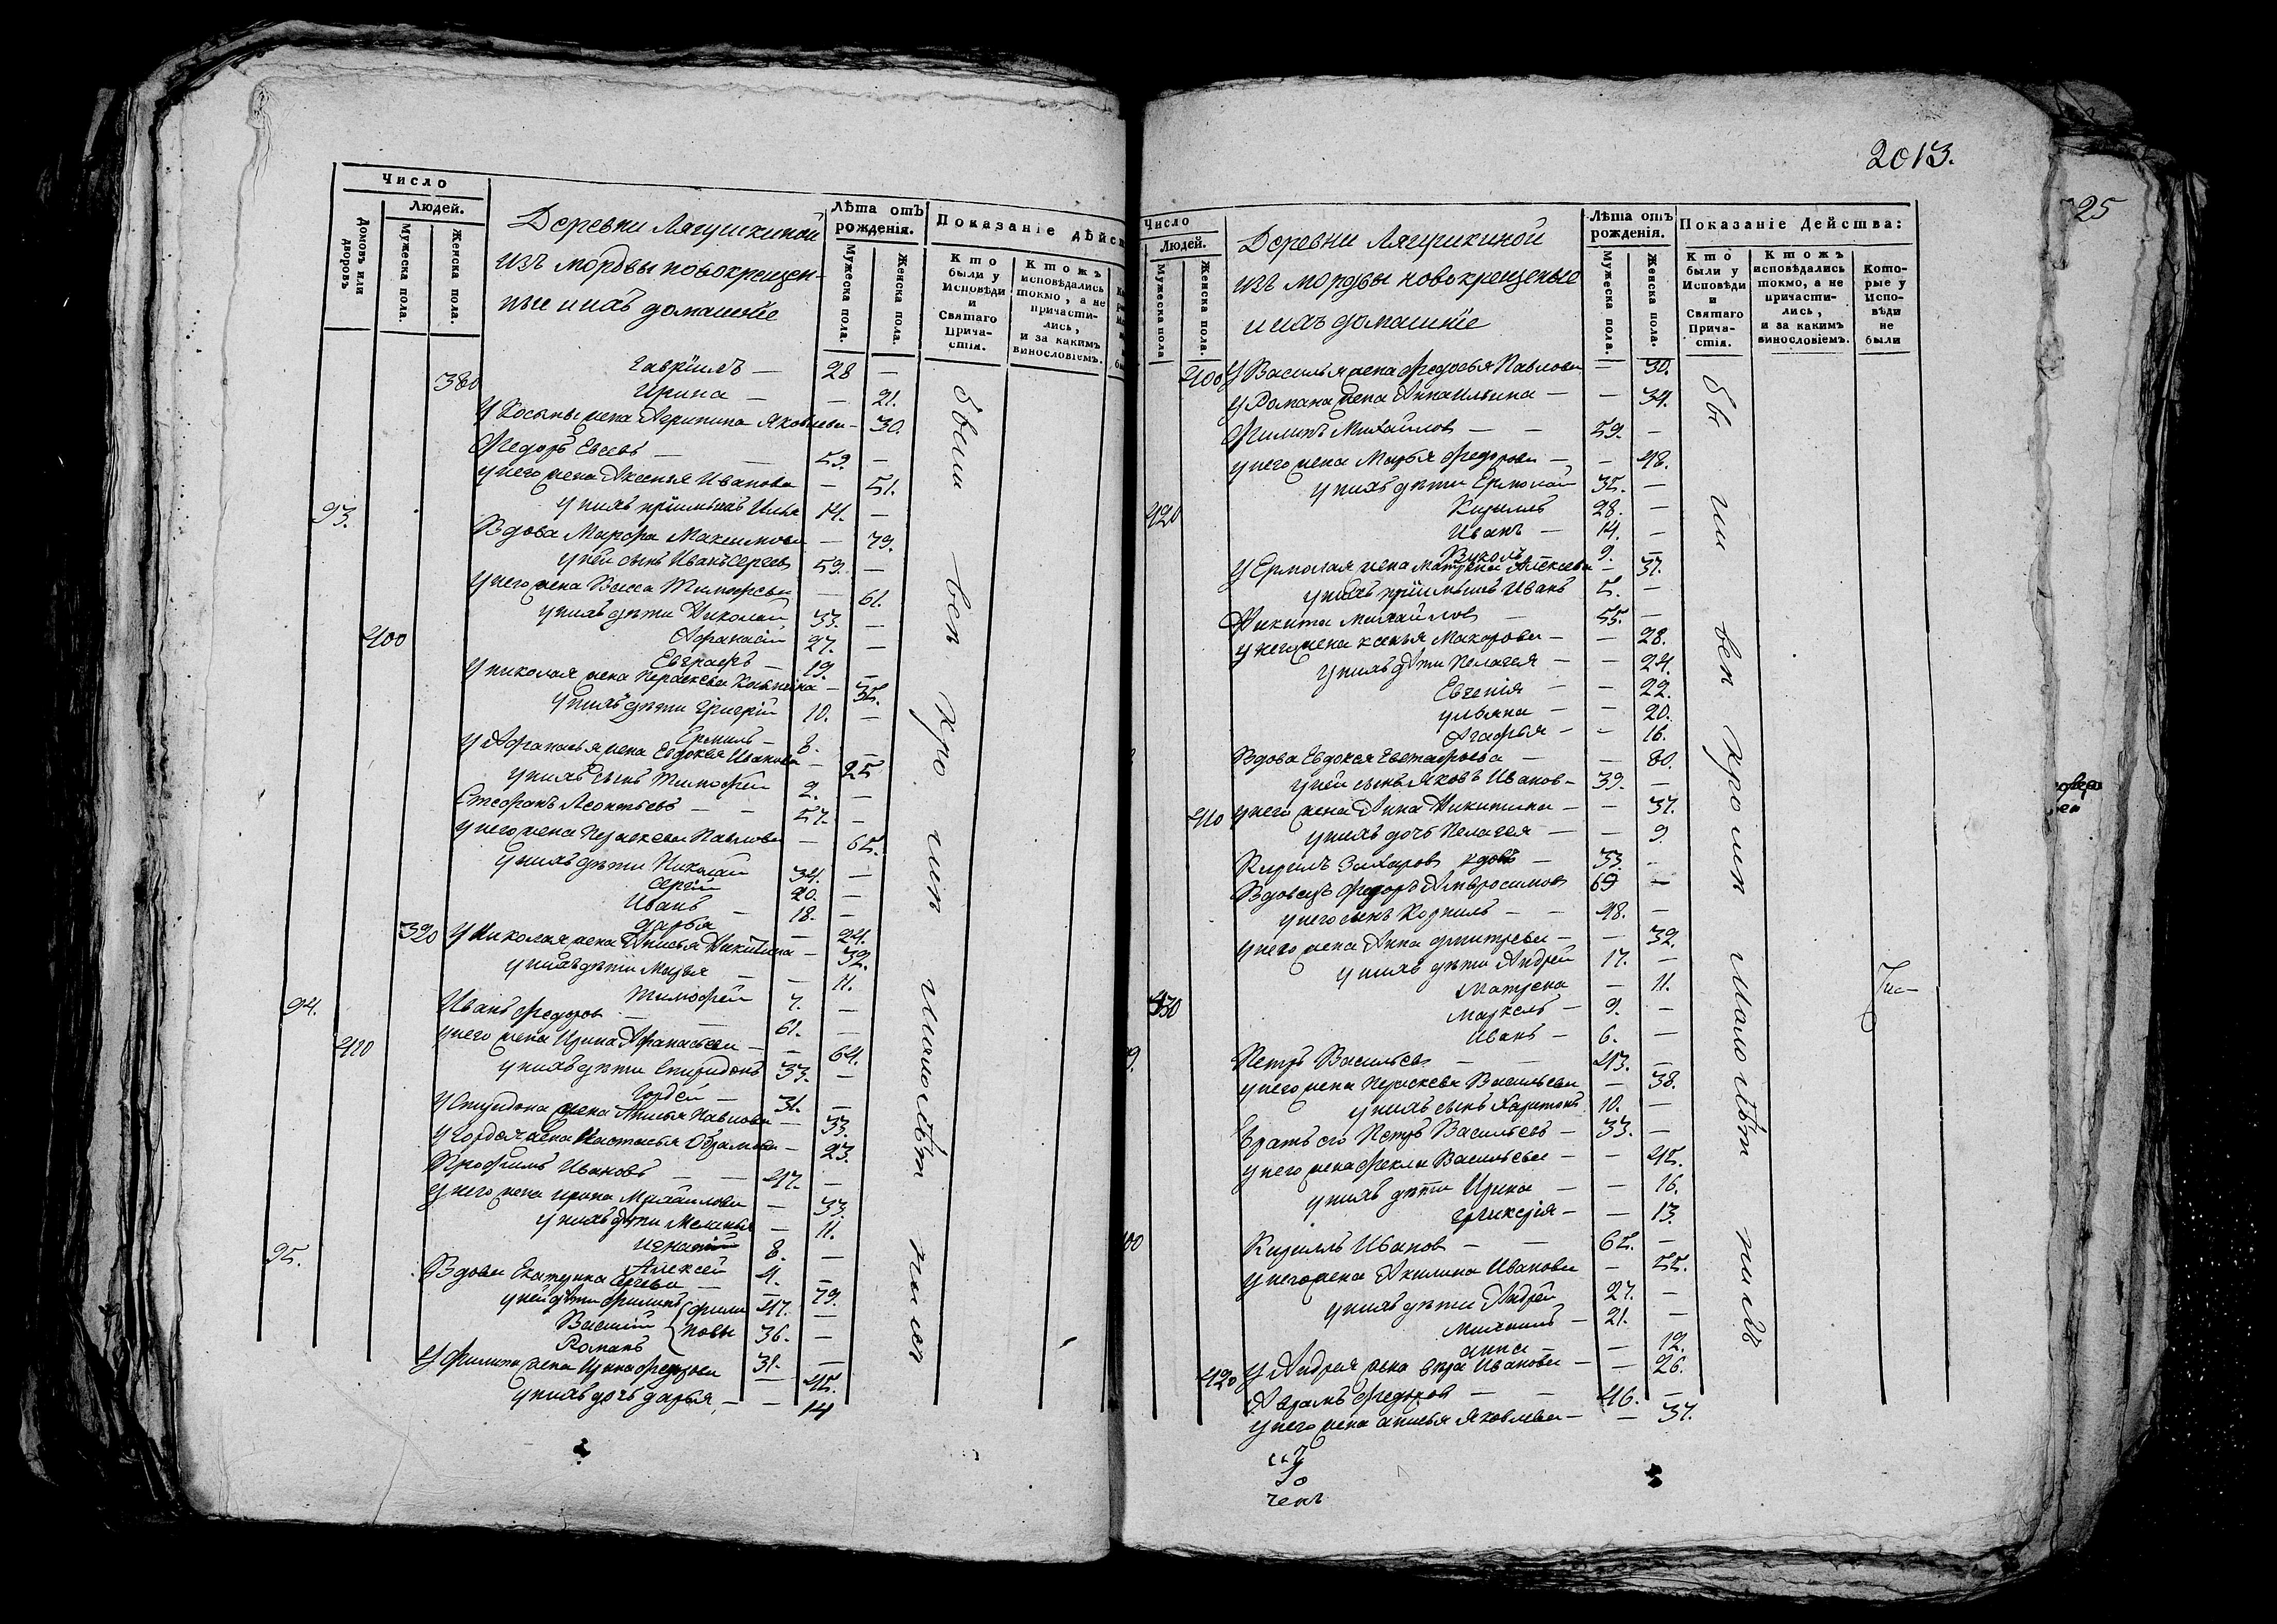 Число
Людей.
Домовъ или дворовъ
Мужеска пола.
Женска пола.
Деревни Лягушкиной
изъ мордвы новокрещен-
ные и ихъ домашнїе
Лѣта отъ рожденія.
Мужеска пола.
Женска пола.
Показаніе дѣйст
Кто были у Исповѣди и Святаго Прича-стія.
Ктожъ исповѣдались токмо, а не причасти-лись, и за какимъ винословіемъ.
Гаврїилъ — 28 —
380 Ирина — — 21.
У Косьмы жена Агрипина Яковлева — 30.
Федоръ Евсеевъ — 59. —
у него жена Аксинья Иванова — 51.
93. у нихъ прїимышъ Илья 14. —
Вдова Марфа Максимова — 79.
у ней сынъ Иванъ Сергеевъ 59. —
у него жена Васса Тимофеева — 61.
у нихъ дѣти Николай 33. —
400 Афанасїй 27. —
Евграфъ — 19. —
у николая жена Параскева — 35.
у нихъ дѣти Григорїй 10. —
8. —
у Афанасья жена Евдокея Иванова — 25
у нихъ сынъ Тимофей 2. —
Стефанъ Леонтьевъ — 57. —
у него жена Параскева Павлова — 65.
у нихъ дѣти Николай 34. —
Сергїй 20. —
Иванъ — 18. —
Дарья — 24.
390 У Николая жена Анисья Никитина — 32.
у нихъ дѣти Марья — — 11.
Тимофей 7. —
94. Иванъ Федоров — 61. —
410 у него жена Ирина Афанасьева — 64.
у нихъ дѣти Спиридонъ 33. —
Гордей — 31. —
У Спиридона жена Анисья Павлова — 33.
У Гордея жена Настасья — 23.
Трофимъ Ивановъ — 47. —
У него жена ирина Михайлова — 33.
у нихъ дѣти Меланья — 11.
Игнатїй 8. —
Алексей 4. —
95. Вдова Екатерина Сергеева — 79.
у ней дѣти Филипъ 47. —
Василїй 36. —
Романъ 31. —
У Филипа жена Ирина Федорова — 45.
у нихъ дочь дарья — — 14
2013.
25
Число
Людей.
Мужеска пола
Женска пола.
Деревни Лягушкиной
изъ мордвы новокрещеные
и ихъ домашнїе
Лѣта отъ рожденія.
Мужеска пола.
Женска пола.
Показаніе Действа:
Кто были у Исповѣди и Святаго Прича-стія.
Ктожъ исповѣдались токмо, а не причасти-лись, и за какимъ винословіемъ.
Кото-рые у Испо-вѣди не были
400 У Василья жена Федосья Павлова — 30.
у Романа жена Анна Ильина — — 34.
Филипъ Михайлов — — 59. —
у него жена Марья Федорова — — 48.
у нихъ дѣти Ермолай 35. —
420 Кирилъ 28. —
Иванъ — 14. —
9. —
У Ермолая жена Матрена Алексеева — 37.
у нихъ прїимышъ Иванъ 5. —
Никита Михайлов — 55. —
у него жена Макарова — — 28.
у нихъ дѣти Пелагея — — 24.
Евгенія — — 22.
ульяна — — 20.
Агафья — — 16.
Вдова Евдокея Евстафьева — — 80.
у ней сынъ Яковъ Иванов — 39. —
410 у него жена Анна Никитина — — 37.
у нихъ дочь Пелагея — — 9
Кирилъ Захаров вдовъ — 53. —
Вдовецъ Федоръ Амвросимов 69 —
у него сынъ Корнилъ — — 48. —
у него жена Анна дмитрева — — 32.
у нихъ дѣти Андрей 17. —
Матрена — 11.
430 Маркелъ — 9. —
Иванъ — 6. —
Петръ Васильев — 43. —
у него жена Параскева Васильева — 38.
у нихъ сынъ Харитонъ 10. —
Братъ его Петръ Васильевъ — 33. —
у него жена Фекла Васильева — — 45.
у нихъ дѣти Ирина — — 16.
— — 13.
Кирилъ Иванов — 65. —
у него жена Акилина Иванова — 55.
у нихъ дѣти Андрей 27. —
Михаилъ — 21. —
анна — — 12.
420 У Андрея жена Иванова — — 26.
Федоров — — 46. —
у него жена анисья Яковлева — — 37.